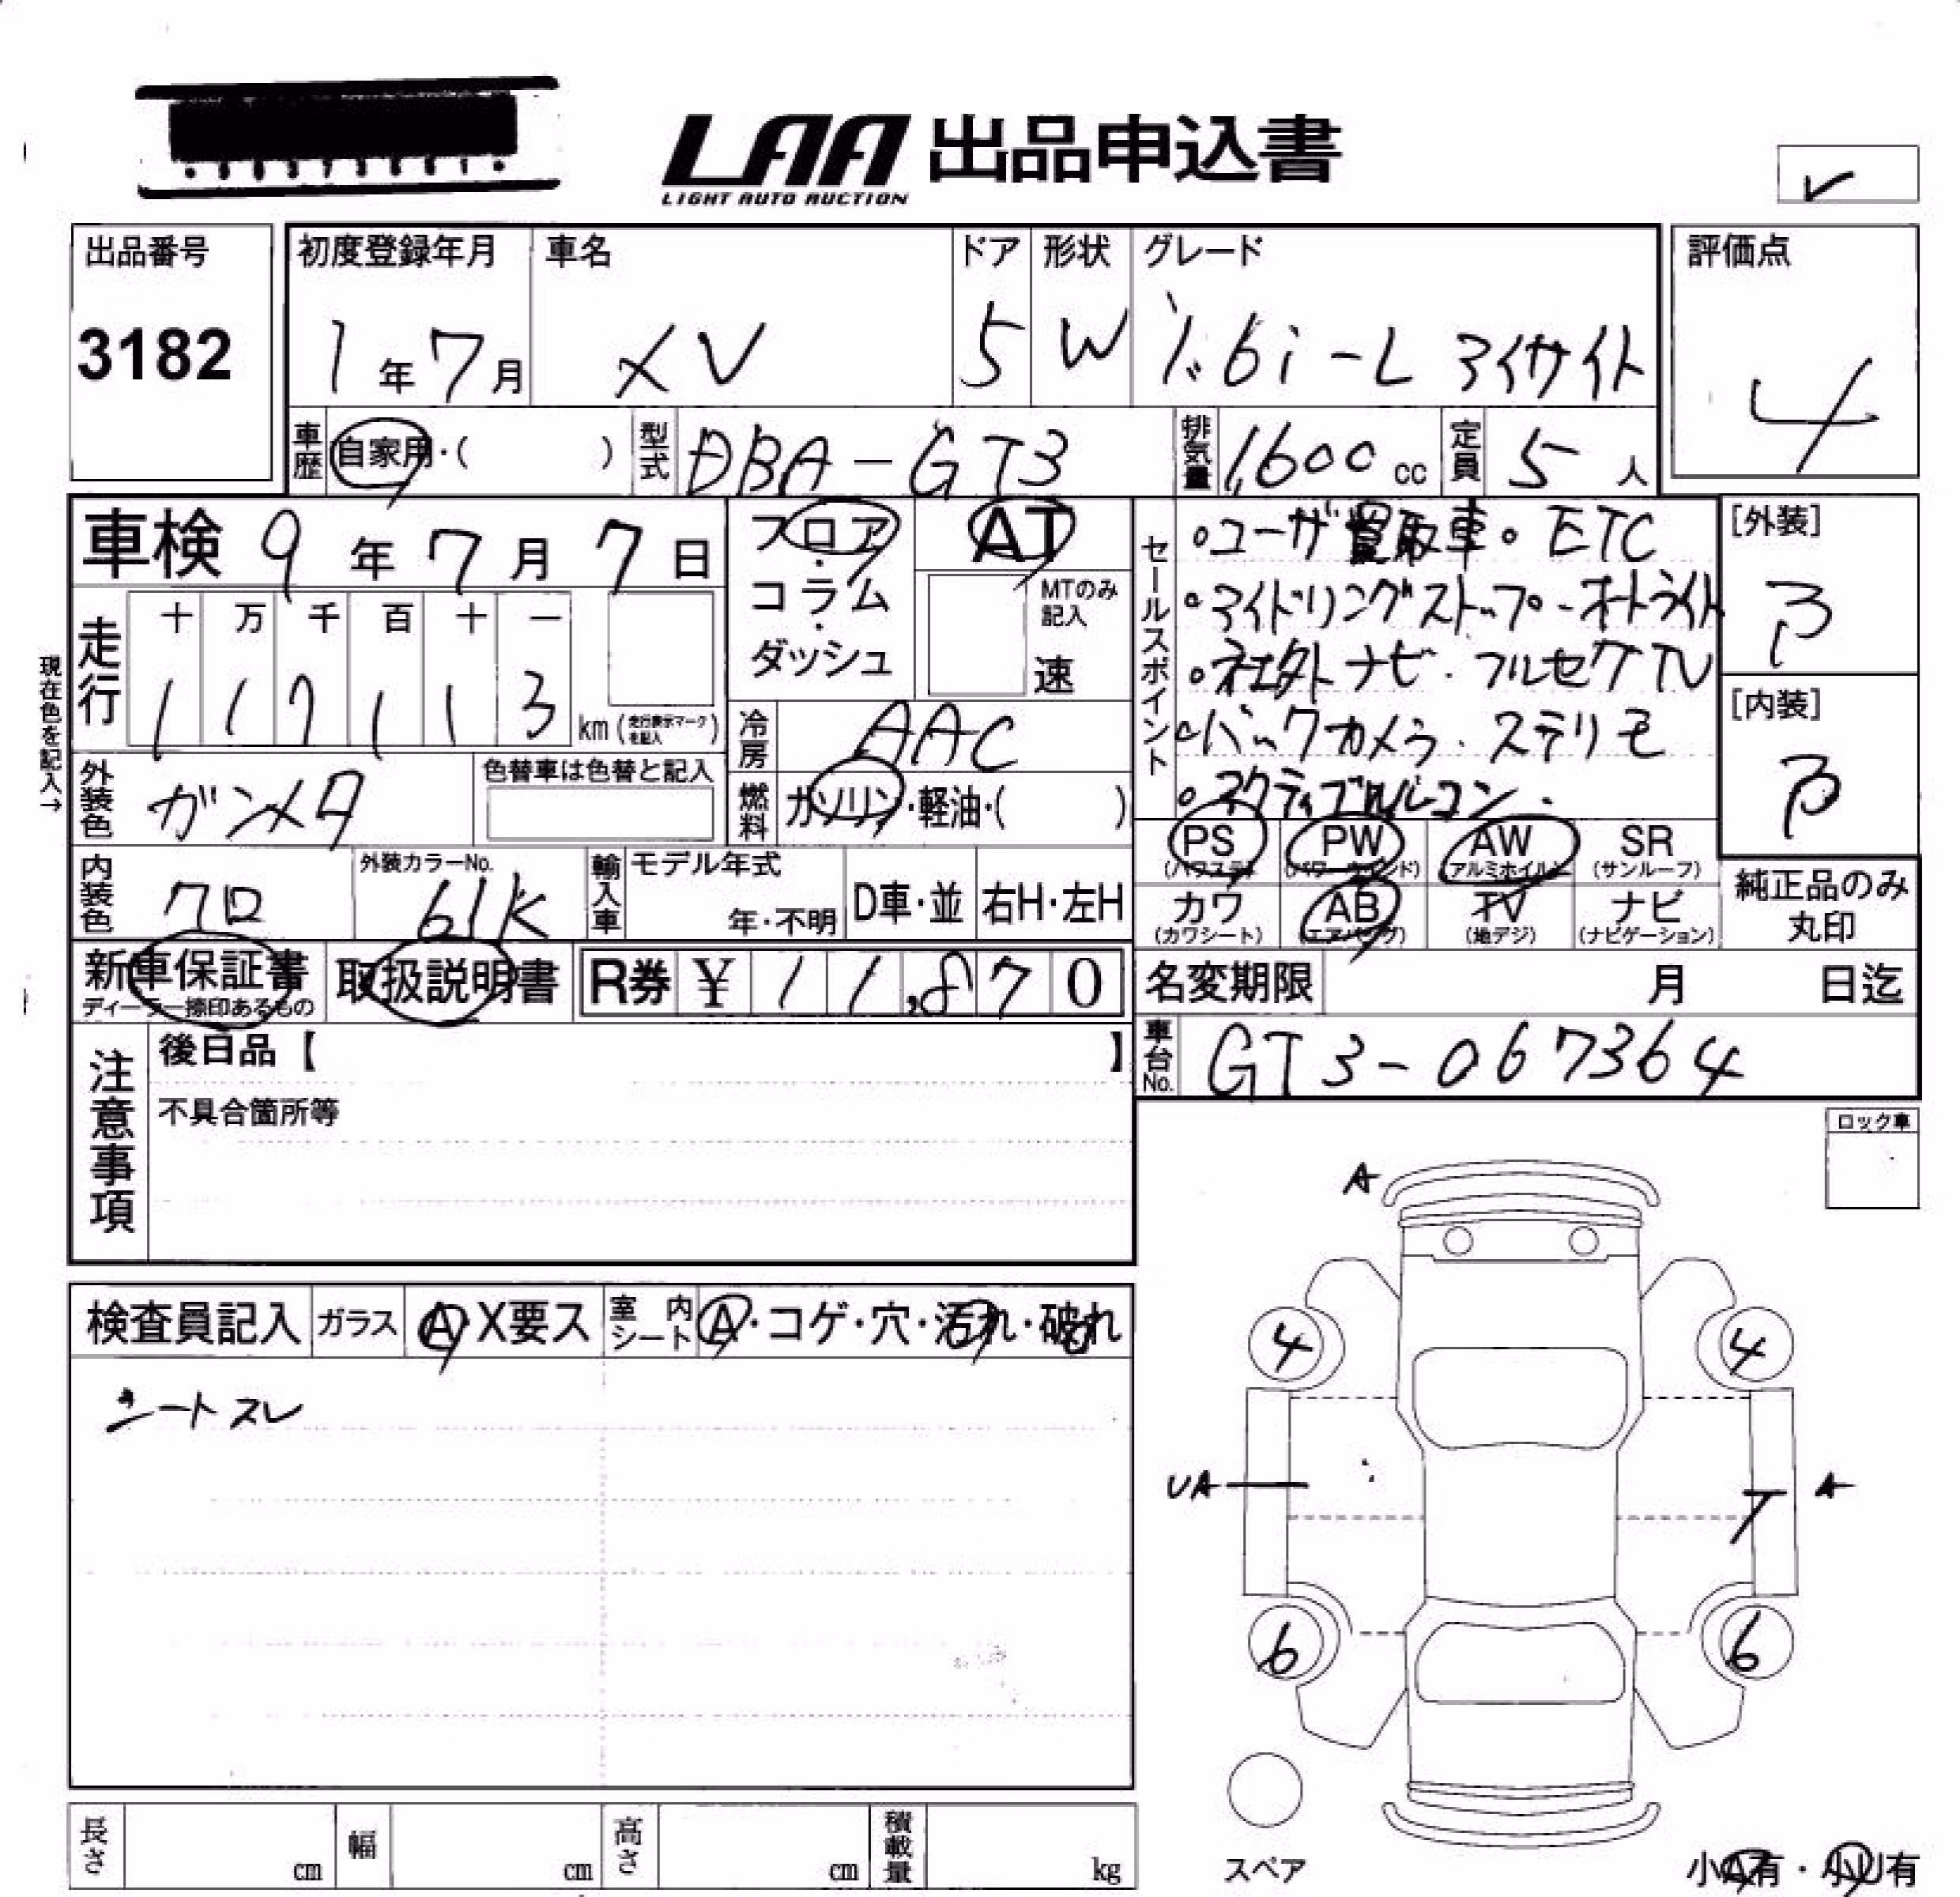 LAA 出品申込書
LIGHT AUTO AUCTION
出品番号
3182
初度登録年月 車名 ドア 形状 グレード
1年7月 XV 5 W 1.6i-L アイサイト
評価点
4
車歴 自家用・( ) 型式 DBA-GT3 排気量 1,600cc 定員 5人
車検 9年7月7日
フロア・コラム・ダッシュ
AT
MTのみ記入
速
セールスポイント
・ユーザ買取車・ETC
・アイドリングストップ・オートライト
・社外ナビ・フルセグTV
・バックカメラ・ステリモ
・アクティブクルコン・
[外装]
B
[内装]
B
現在色を記入→
走行 十 万 千 百 十 一
117113 km (走行表示マークを記入)
冷房 AAC
外装色 ガンメタ 色替車は色替と記入
燃料 ガソリン・軽油・( )
内装色 クロ 外装カラーNo. 61K
輸入車 モデル年式 年・不明 D車・並 右H・左H
PS (パワステ) PW (パワーウインド) AW (アルミホイル) SR (サンルーフ)
カワ (カワシート) AB (エアバッグ) TV (地デジ) ナビ (ナビゲーション)
純正品のみ丸印
新車保証書 ディーラー捺印あるもの 取扱説明書 R券 ¥11,870
名変期限 月 日迄
車台No. GT3-067364
注意事項
後日品【 】
不具合箇所等
ロック車
検査員記入 ガラス A・X要ス 室内シート A・コゲ・穴・汚れ・破れ
シートスレ
A
4 4
UA A
6 6
スペア
小A有・小U有
長さ cm 幅 cm 高さ cm 積載量 kg